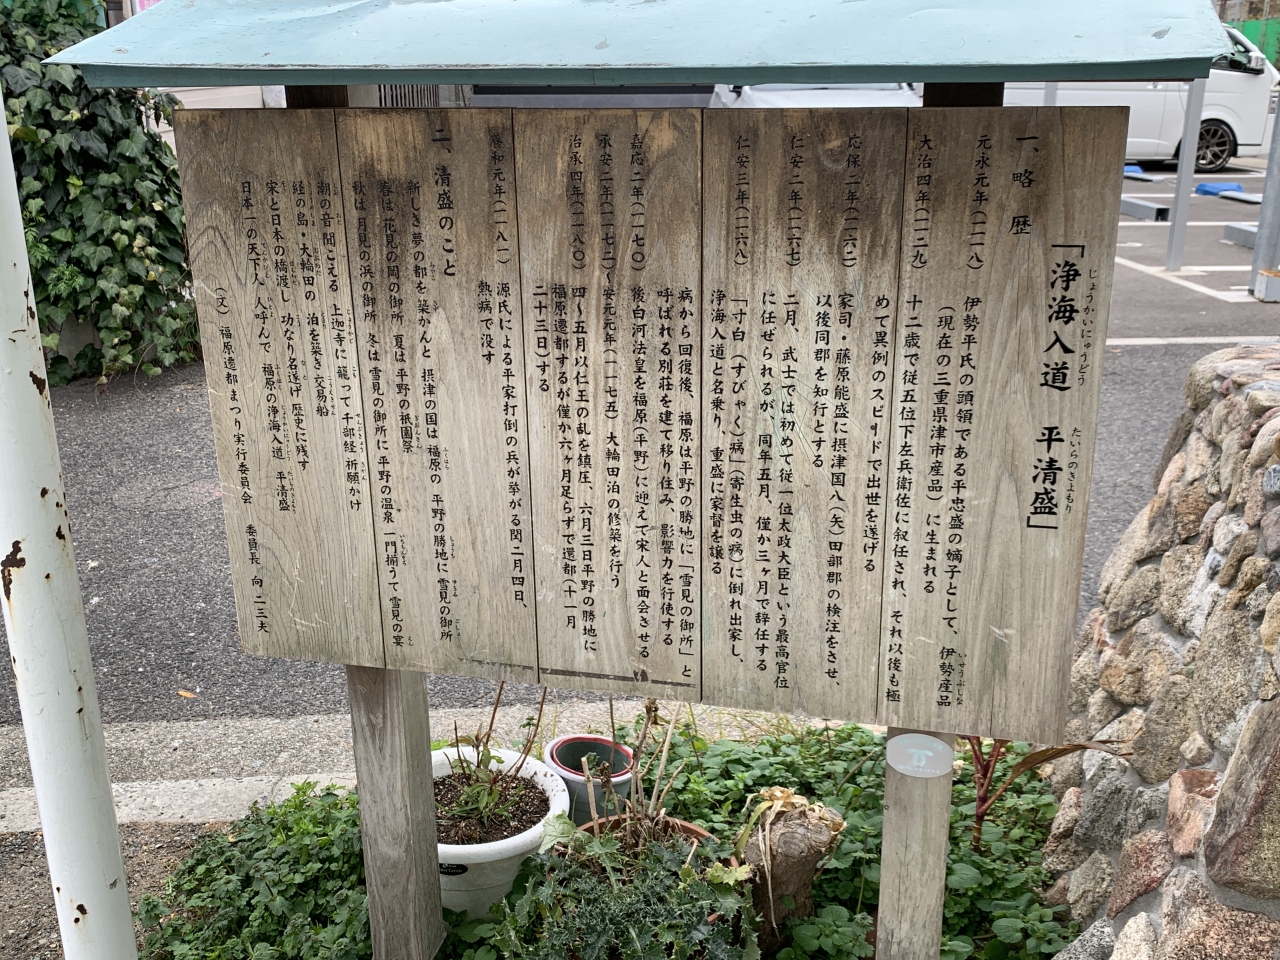 「浄海入道 平清盛」
じょうかいにゅうどう たいらのきよもり
一、略歴
元永元年(一一一八) 伊勢平氏の頭領である平忠盛の嫡子として、伊勢産品
いせうぶしな
(現在の三重県津市産品)に生まれる
大治四年(一一二九) 十二歳で従五位下左兵衛佐に叙任され、それ以後も極
めて異例のスピードで出世を遂げる
応保二年(一一六二) 家司・藤原能盛に摂津国八(矢)田部郡の検注をさせ、
以後同郡を知行とする
仁安二年(一一六七) 二月、武士では初めて従一位太政大臣という最高官位
に任ぜられるが、同年五月、僅か三ヶ月で辞任する
仁安三年(一一六八) 「寸白(すびゃく)病」(寄生虫の病)に倒れ出家し、
浄海入道と名乗り、重盛に家督を譲る
病から回復後、福原は平野の勝地に「雪見の御所」と
呼ばれる別荘を建て移り住み、影響力を行使する
嘉応二年(一一七〇) 後白河法皇を福原(平野)に迎えて宋人と面会させる
承安二年(一一七二)〜安元元年(一一七五) 大輪田泊の修築を行う
治承四年(一一八〇) 四〜五月以仁王の乱を鎮圧、六月三日平野の勝地に
福原遷都するが僅か六ヶ月足らずで還都(十一月
二十三日)する
養和元年(一一八一) 源氏による平家打倒の兵が挙がる閏二月四日、
熱病で没す
二、清盛のこと
新しき夢の都を 築かんと 摂津の国は 福原の 平野の勝地に 雪見の御所
春は 花見の岡の御所 夏は 平野の祇園祭
秋は 月見の浜の御所 冬は 雪見の御所に 平野の温泉 一門揃うて 雪見の宴
潮の音聞こえる 上迦寺に 籠って 千部経 祈願かけ
経の島・大輪田の 泊を築き 交易船
宋と日本の橋渡し 功なり名遂げ 歴史に残す
日本一の天下人 人呼んで 福原の浄海入道 平清盛
(文) 福原遷都まつり実行委員会 委員長 向 二三夫